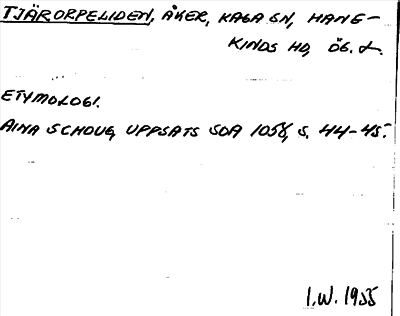 TJÄRORPELIDEN, ÅKER, KAGA SN, HANE-
KINDS HD, ÖG. L.
ETYMOLOGI.
AINA SCHOUG, UPPSATS SOA 1058, S. 44-45.
I.W. 1955